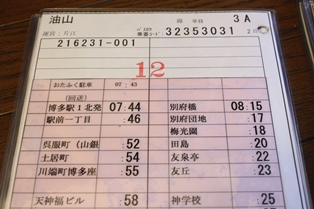 油山 3A
運賃:片江 32353031
216231-001
12
おたふく駐車 07:43
(回送)
博多駅1北発 07:44 別府橋 08:15
駅前一丁目 :46 別府団地 :17
梅光園 :18
呉服町(山銀 :52 田島 :20
土居町 :54 友泉亭 :22
川端町博多座 :55 友丘 :23
天神福ビル :58 神学校 :25